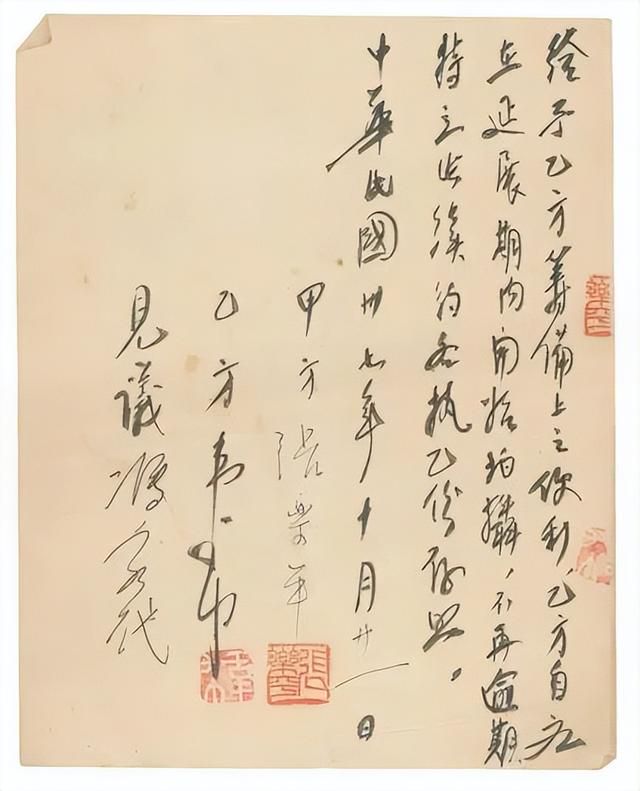 給予乙方籌備上之便利，乙方自應
在延展期內開始拍攝，不再逾期。
特立此續約各執乙份存照。
中華民國卅七年十月廿一日
甲方 張樂平
乙方 韋布
見議 馮亦代
張樂平印